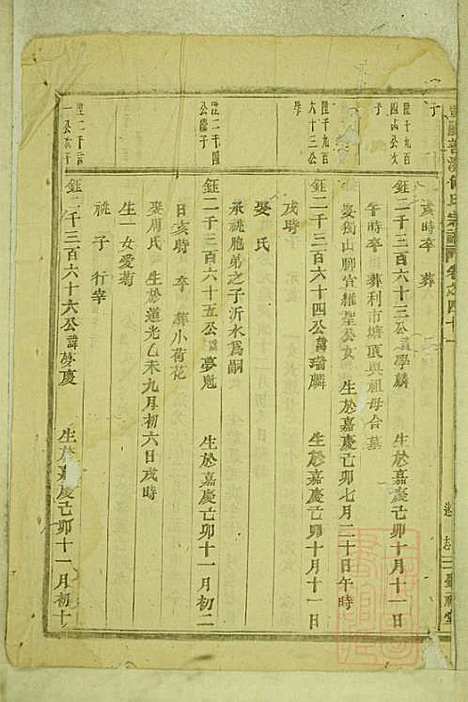 氏宗譜 卷之四十一
亥時卒 葬
鉦二千三百六十三公諱學麟 生於嘉慶己卯十月十一日
午時卒 葬利市塘底與祖母合墓
娶獨山脚官維聖公女 生於嘉慶己卯七月二十日午時
鉦二千三百六十四公諱瑞麟 生於嘉慶己卯十月十一日
戌時
娶氏
承祧胞弟之子沂水爲嗣
鉦二千三百六十五公諱夢魁 生於嘉慶己卯十一月初二
日亥時 卒 葬小荷花
娶周氏 生於道光乙未九月初六日戌時
生一女愛菊
祧子 行幸
鉦二千三百六十六公諱夢慶 生於嘉慶己卯十一月初十